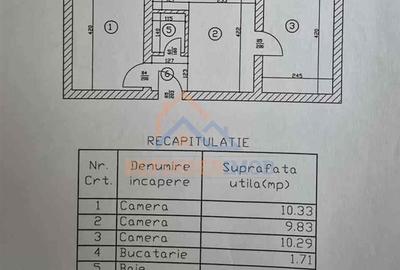 420
1
115
5
60
200
2
420
3
85
200
420
127
6
84
200
123
245
RECAPITULATIE
Nr. Crt. Denumire incapere Suprafata utila(mp)
1 Camera 10.33
2 Camera 9.83
3 Camera 10.29
4 Bucatarie 1.71
5 Baie